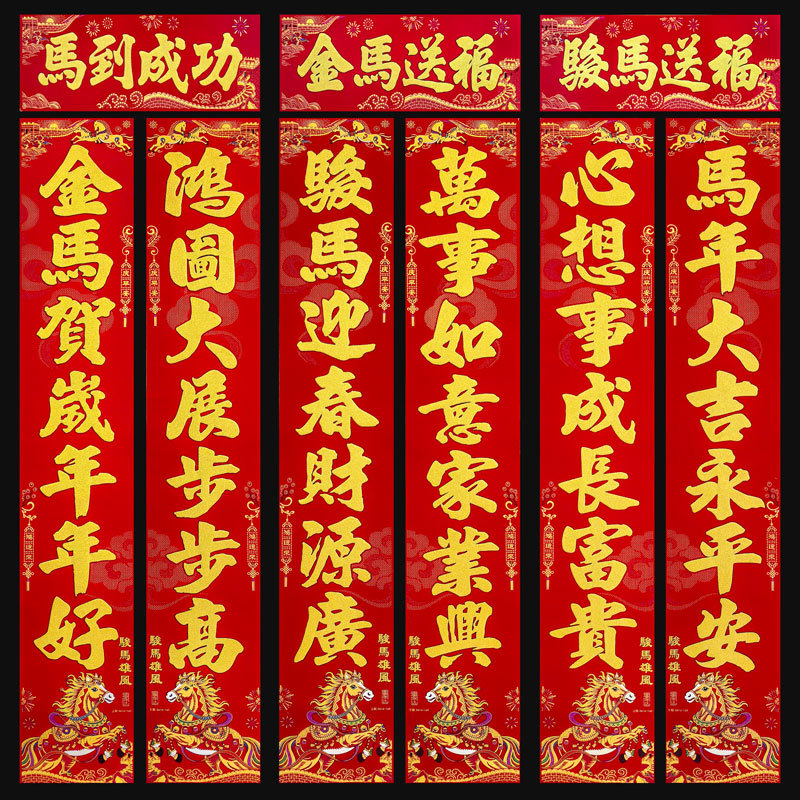 馬到成功
金馬賀歲年年好
鴻圖大展步步高
駿馬雄風
駿馬雄風
金馬送福
駿馬迎春財源廣
萬事如意家業興
駿馬雄風
駿馬雄風
駿馬送福
心想事成長富貴
馬年大吉永平安
駿馬雄風
駿馬雄風